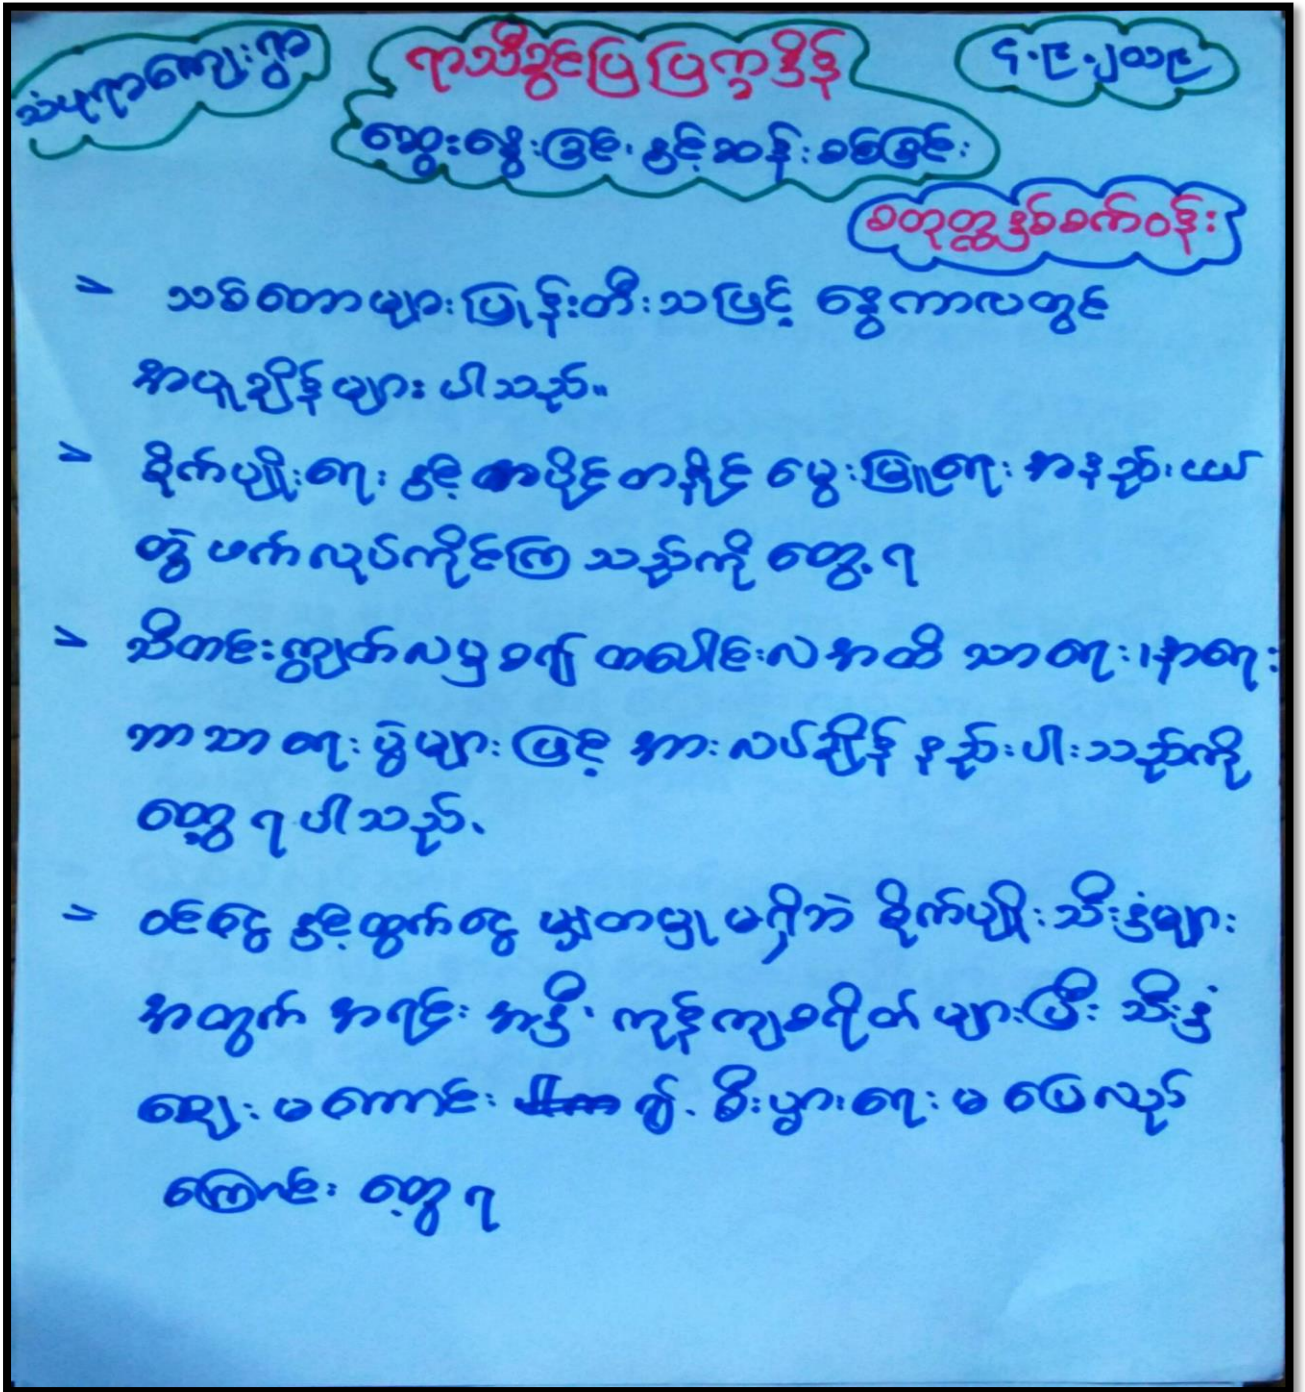 သံပုရာကျေးရွာ
ရာသီခွင်ပြ ပြက္ခဒိန်
၄.၉.၂၀၁၉
ဆွေးနွေးခြင်း နှင့် ဆန်းစစ်ခြင်း
စတုတ္ထနှစ်စက်ဝန်း
သစ်တောများပြုန်းတီးသဖြင့် နွေကာလတွင်
အပူချိန်များပါသည်။
စိုက်ပျိုးရေး နှင့် တပိုင်တနိုင် မွေးမြူရေး အနည်းငယ်
တွဲဖက်လုပ်ကိုင်ကြသည်ကို တွေ့ရ
သီတင်းကျွတ်လမှ စ၍ တပေါင်းလအထိ သာရေး၊ နာရေး
ဘာသာရေးပွဲများဖြင့် အားလပ်ချိန် နည်းပါးသည်ကို
တွေ့ရပါသည်.
ဝင်ငွေ နှင့် ထွက်ငွေ မျှတမှု မရှိဘဲ စိုက်ပျိုးသီးနှံများ
အတွက် အရင်းအနှီး ကုန်ကျစရိတ် များပြီး သီးနှံ
ဈေး မကောင်း ၍ စီးပွားရေး မပြေလည်
ကြောင်း တွေ့ရ